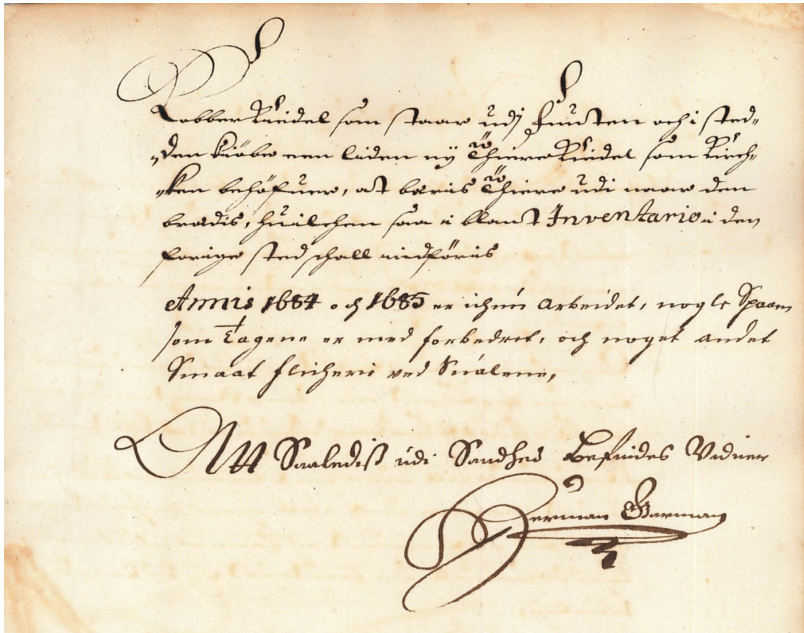 Kobber Kiedel som staar udj Funten och i sted-
den kiøbe een liden ny Thiere Kiedel som Kirch-
ken behöfuer, at bæris Thiere udi naar den
brædis, huilchen saa i blant Inventario i den
forige sted schall indføris
Annis 1684 och 1685 er ichun arbeidet, nogle Spaan
som Tagene er med forbedret, och noget andet
Smaat flicherie ved Sualene,
Att Saaledis udi Sandhed Befindes Vidner
Herman Garman